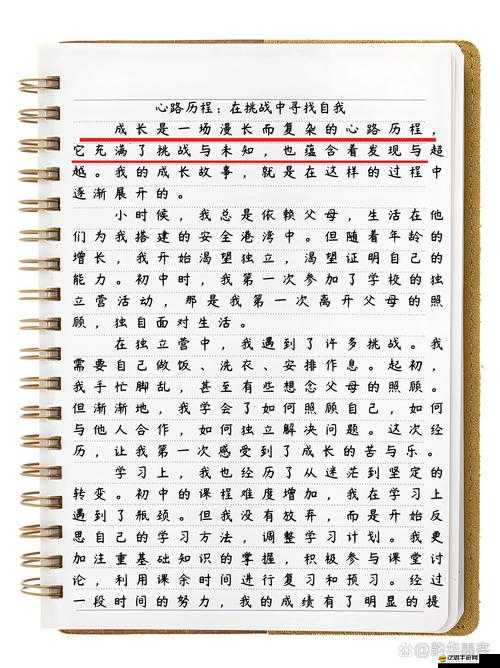 心路历程：在挑战中寻找自我
成长是一场漫长而复杂的心路历程，
它充满了挑战与未知，也蕴含着发现与超
越。我的成长故事，就是在这样的过程中
逐渐展开的。
小时候，我总是依赖父母，生活在他
们为我搭建的安全港湾中。但随着年龄的
增长，我开始渴望独立，渴望证明自己的
能力。初中时，我第一次参加了学校的独
立营活动，那是我第一次离开父母的照
顾，独自面对生活。
在独立营中，我遇到了许多挑战。我
需要自己做饭、洗衣、安排作息。起初，
我手忙脚乱，甚至有些想念父母的照顾。
但渐渐地，我学会了如何照顾自己，如何
与他人合作，如何独立解决问题。这次经
历，让我第一次感受到了成长的苦与乐。
学习上，我也经历了从迷茫到坚定的
转变。初中的课程难度增加，我在学习上
遇到了瓶颈。但我没有放弃，而是开始反
思自己的学习方法，调整学习计划。我更
加注重基础知识的掌握，积极参与课堂讨
论，利用课余时间进行复习和预习。经过
一段时间的努力，我的成绩有了明显的提